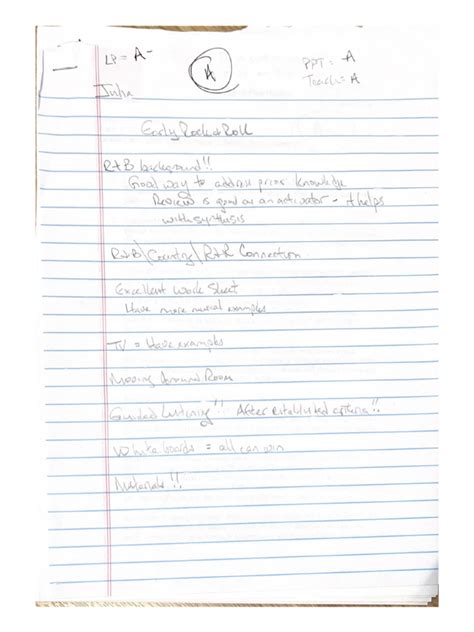 LP = A-
A
PPT: A
Teach = A
Julia
Early Rock & Roll
R+B background!!
Good way to address prior knowledge
Review is good as an activator - helps
with synthesis
R+B\Country\R+R Connection
Excellent Work Sheet
Have more musical examples
TV = Have examples
Moving Around Room
Guided Listening!! After established criteria!!
White boards = all can win
Materials!!